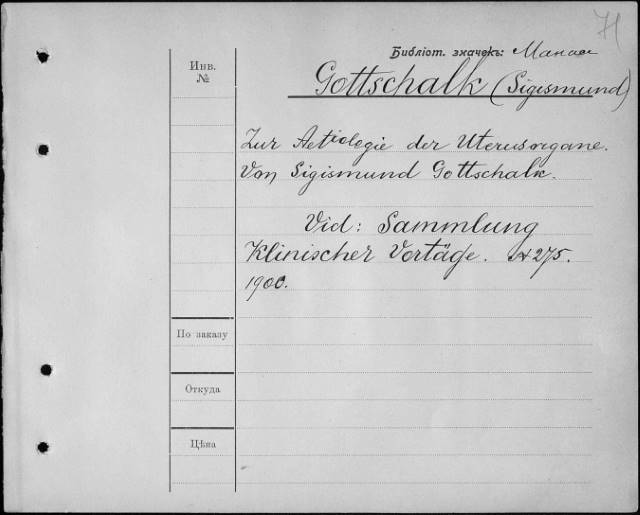 71
Библіот. значекъ:
Инв.
№
Gottschalk (Sigismund)
Zur Aetiologie der Uterusorgane.
Von Sigismund Gottschalk.
Vid: Sammlung
Klinischer Vortäge. № 275.
1900.
По заказу
Откуда
Цѣна